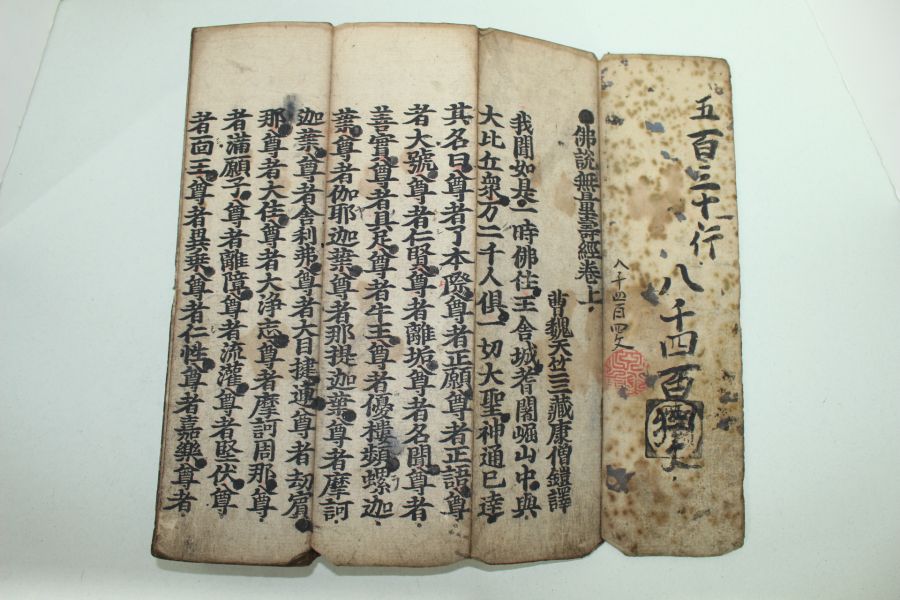 五百二十行
八千四百四文
八千四百四文
佛說無量壽經卷上
曹魏天竺三藏康僧鎧譯
我聞如是一時佛住王舍城耆闍崛山中與
大比丘衆万二千人俱一切大聖神通已達
其名曰尊者了本際尊者正願尊者正語尊
者大號尊者仁賢尊者離垢尊者名聞尊者
善實尊者具足尊者牛王尊者優樓頻螺迦
葉尊者伽耶迦葉尊者那提迦葉尊者摩訶
迦葉尊者舍利弗尊者大目揵連尊者劫賓
那尊者大住尊者大淨志尊者摩訶周那尊
者滿願子尊者離障尊者流灌尊者堅伏尊
者面王尊者異乘尊者仁性尊者嘉樂尊者